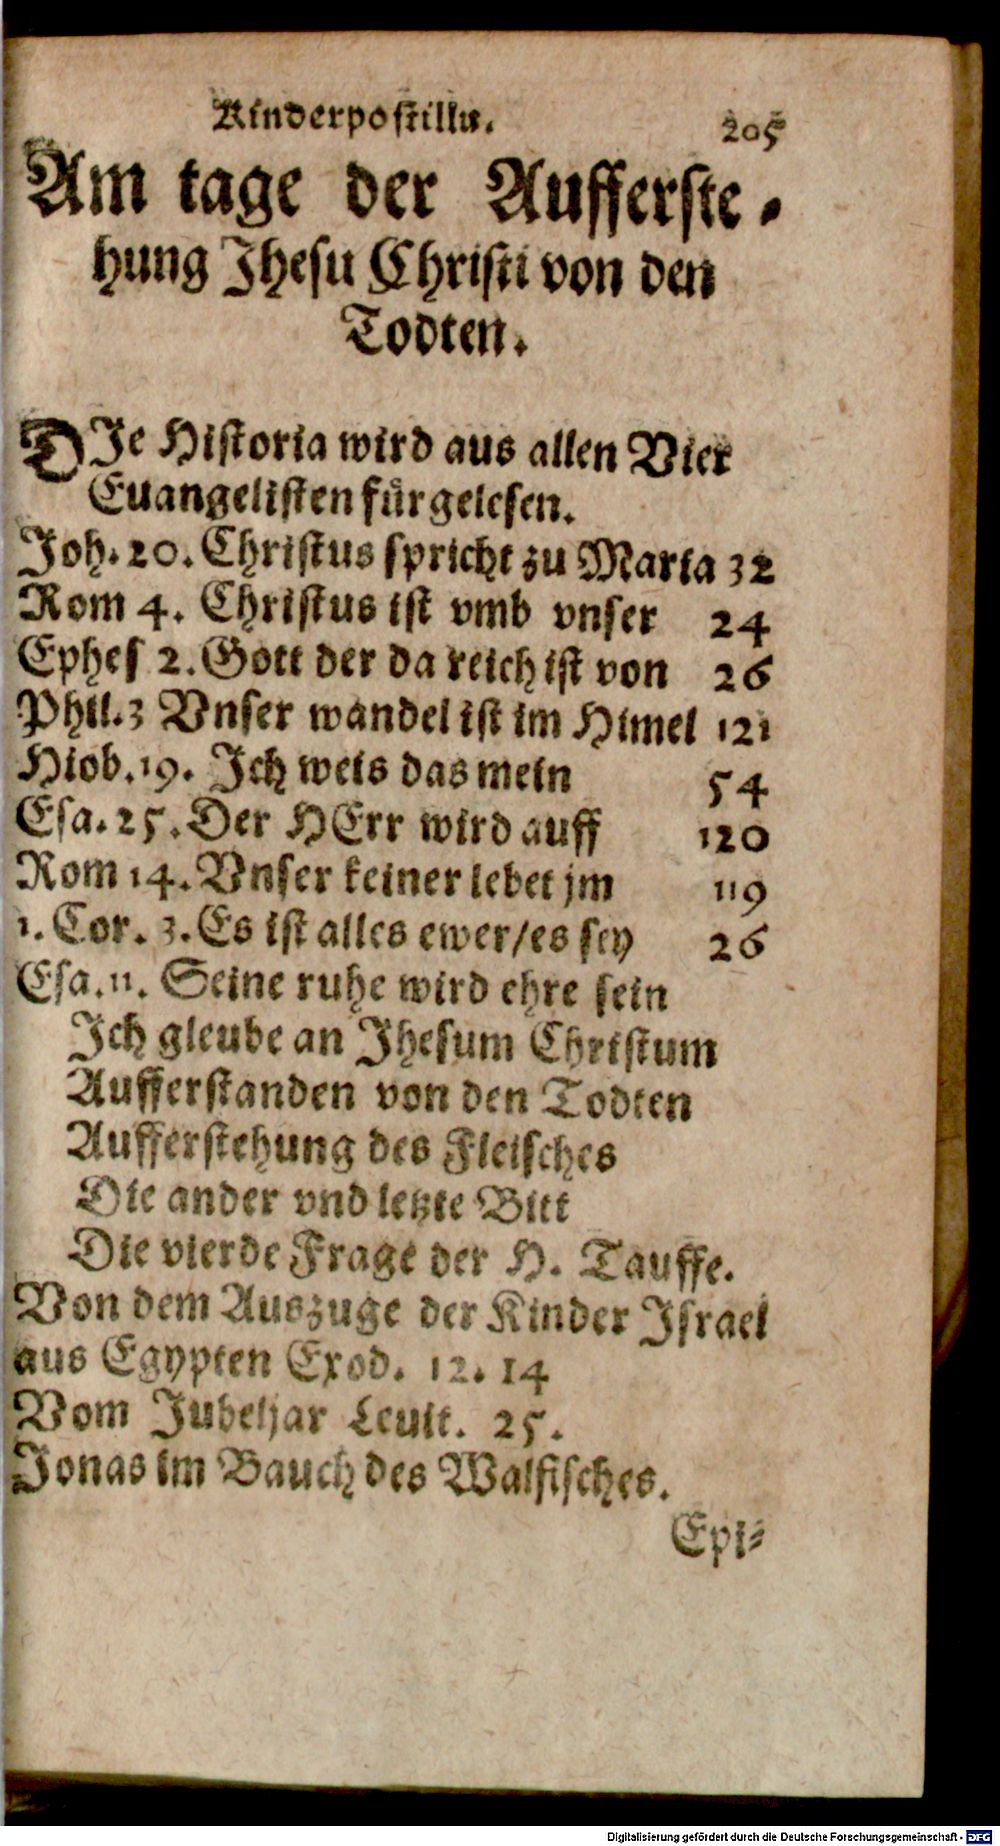 Kinderpostilln. 205
Am tage der Aufferste-
hung Jhesu Christi von den
Todten.
DJe Historia wird aus allen Vier
Euangelisten fürgelesen.
Joh. 20. Christus spricht zu Maria 32
Rom 4. Christus ist vmb vnser 24
Ephes 2. Gott der da reich ist von 26
Phil. 3 Vnser wandel ist im Himel 121
Hiob. 19. Jch weis das mein 54
Esa. 25. Der HErr wird auff 120
Rom 14. Vnser keiner lebet jm 119
1. Cor. 3. Es ist alles ewer/es sey 26
Esa. 11. Seine ruhe wird ehre sein
Jch gleube an Jhesum Christum
Aufferstanden von den Todten
Aufferstehung des Fleisches
Die ander vnd letzte Bitt
Die vierde Frage der H. Tauffe.
Von dem Auszuge der Kinder Jsrael
aus Egypten Exod. 12. 14
Vom Jubeljar Leuit. 25.
Jonas im Bauch des Walfisches.
Epi-
Digitalisierung gefördert durch die Deutsche Forschungsgemeinschaft - DFG